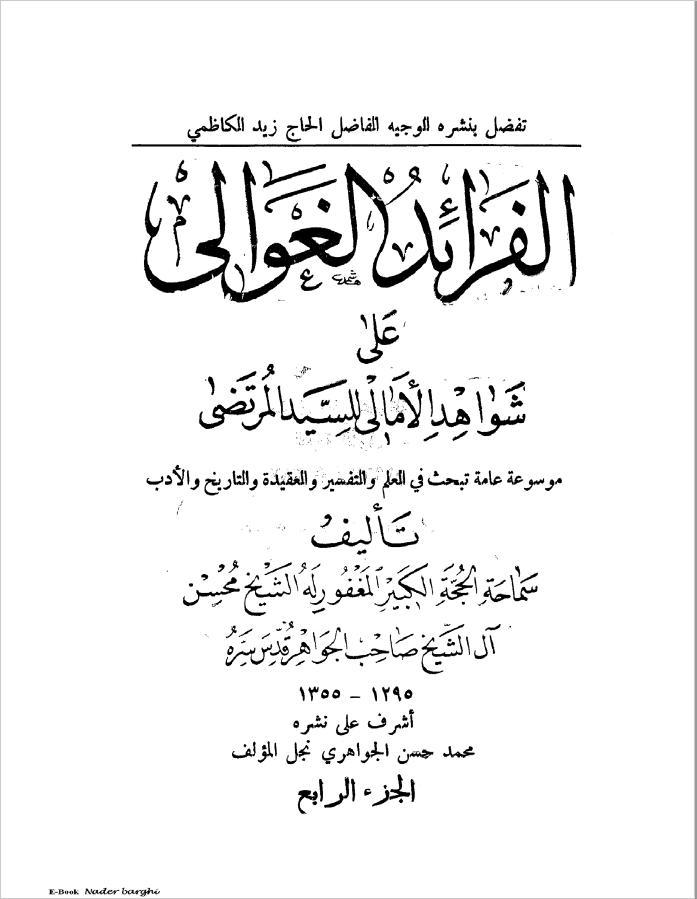 تفضل بنشره الوجيه الفاضل الحاج زيد الكاظمي
الفَرائدُ الغَوالى
عَلىٰ
شَوَاهِدِ الأمَالى للسيّد المُرتَضىٰ
موسوعة عامة تبحث في العلم والتفسير والعقيدة والتاريخ والأدب
تَأليفُ
سَمَاحَةِ الحُجَّةِ الكَبيرِ المَغْفُورِ لَهُ الشَّيخ مُحْسِن
آل الشَّيخ صَاحِبِ الجَوَاهِر قُدّسَ سِرّهُ
١٢٩٥ - ١٣٥٥
أشرف على نشره
محمد حسن الجواهري نجل المؤلف
الجزء الرابع
E-Book Nader barghi